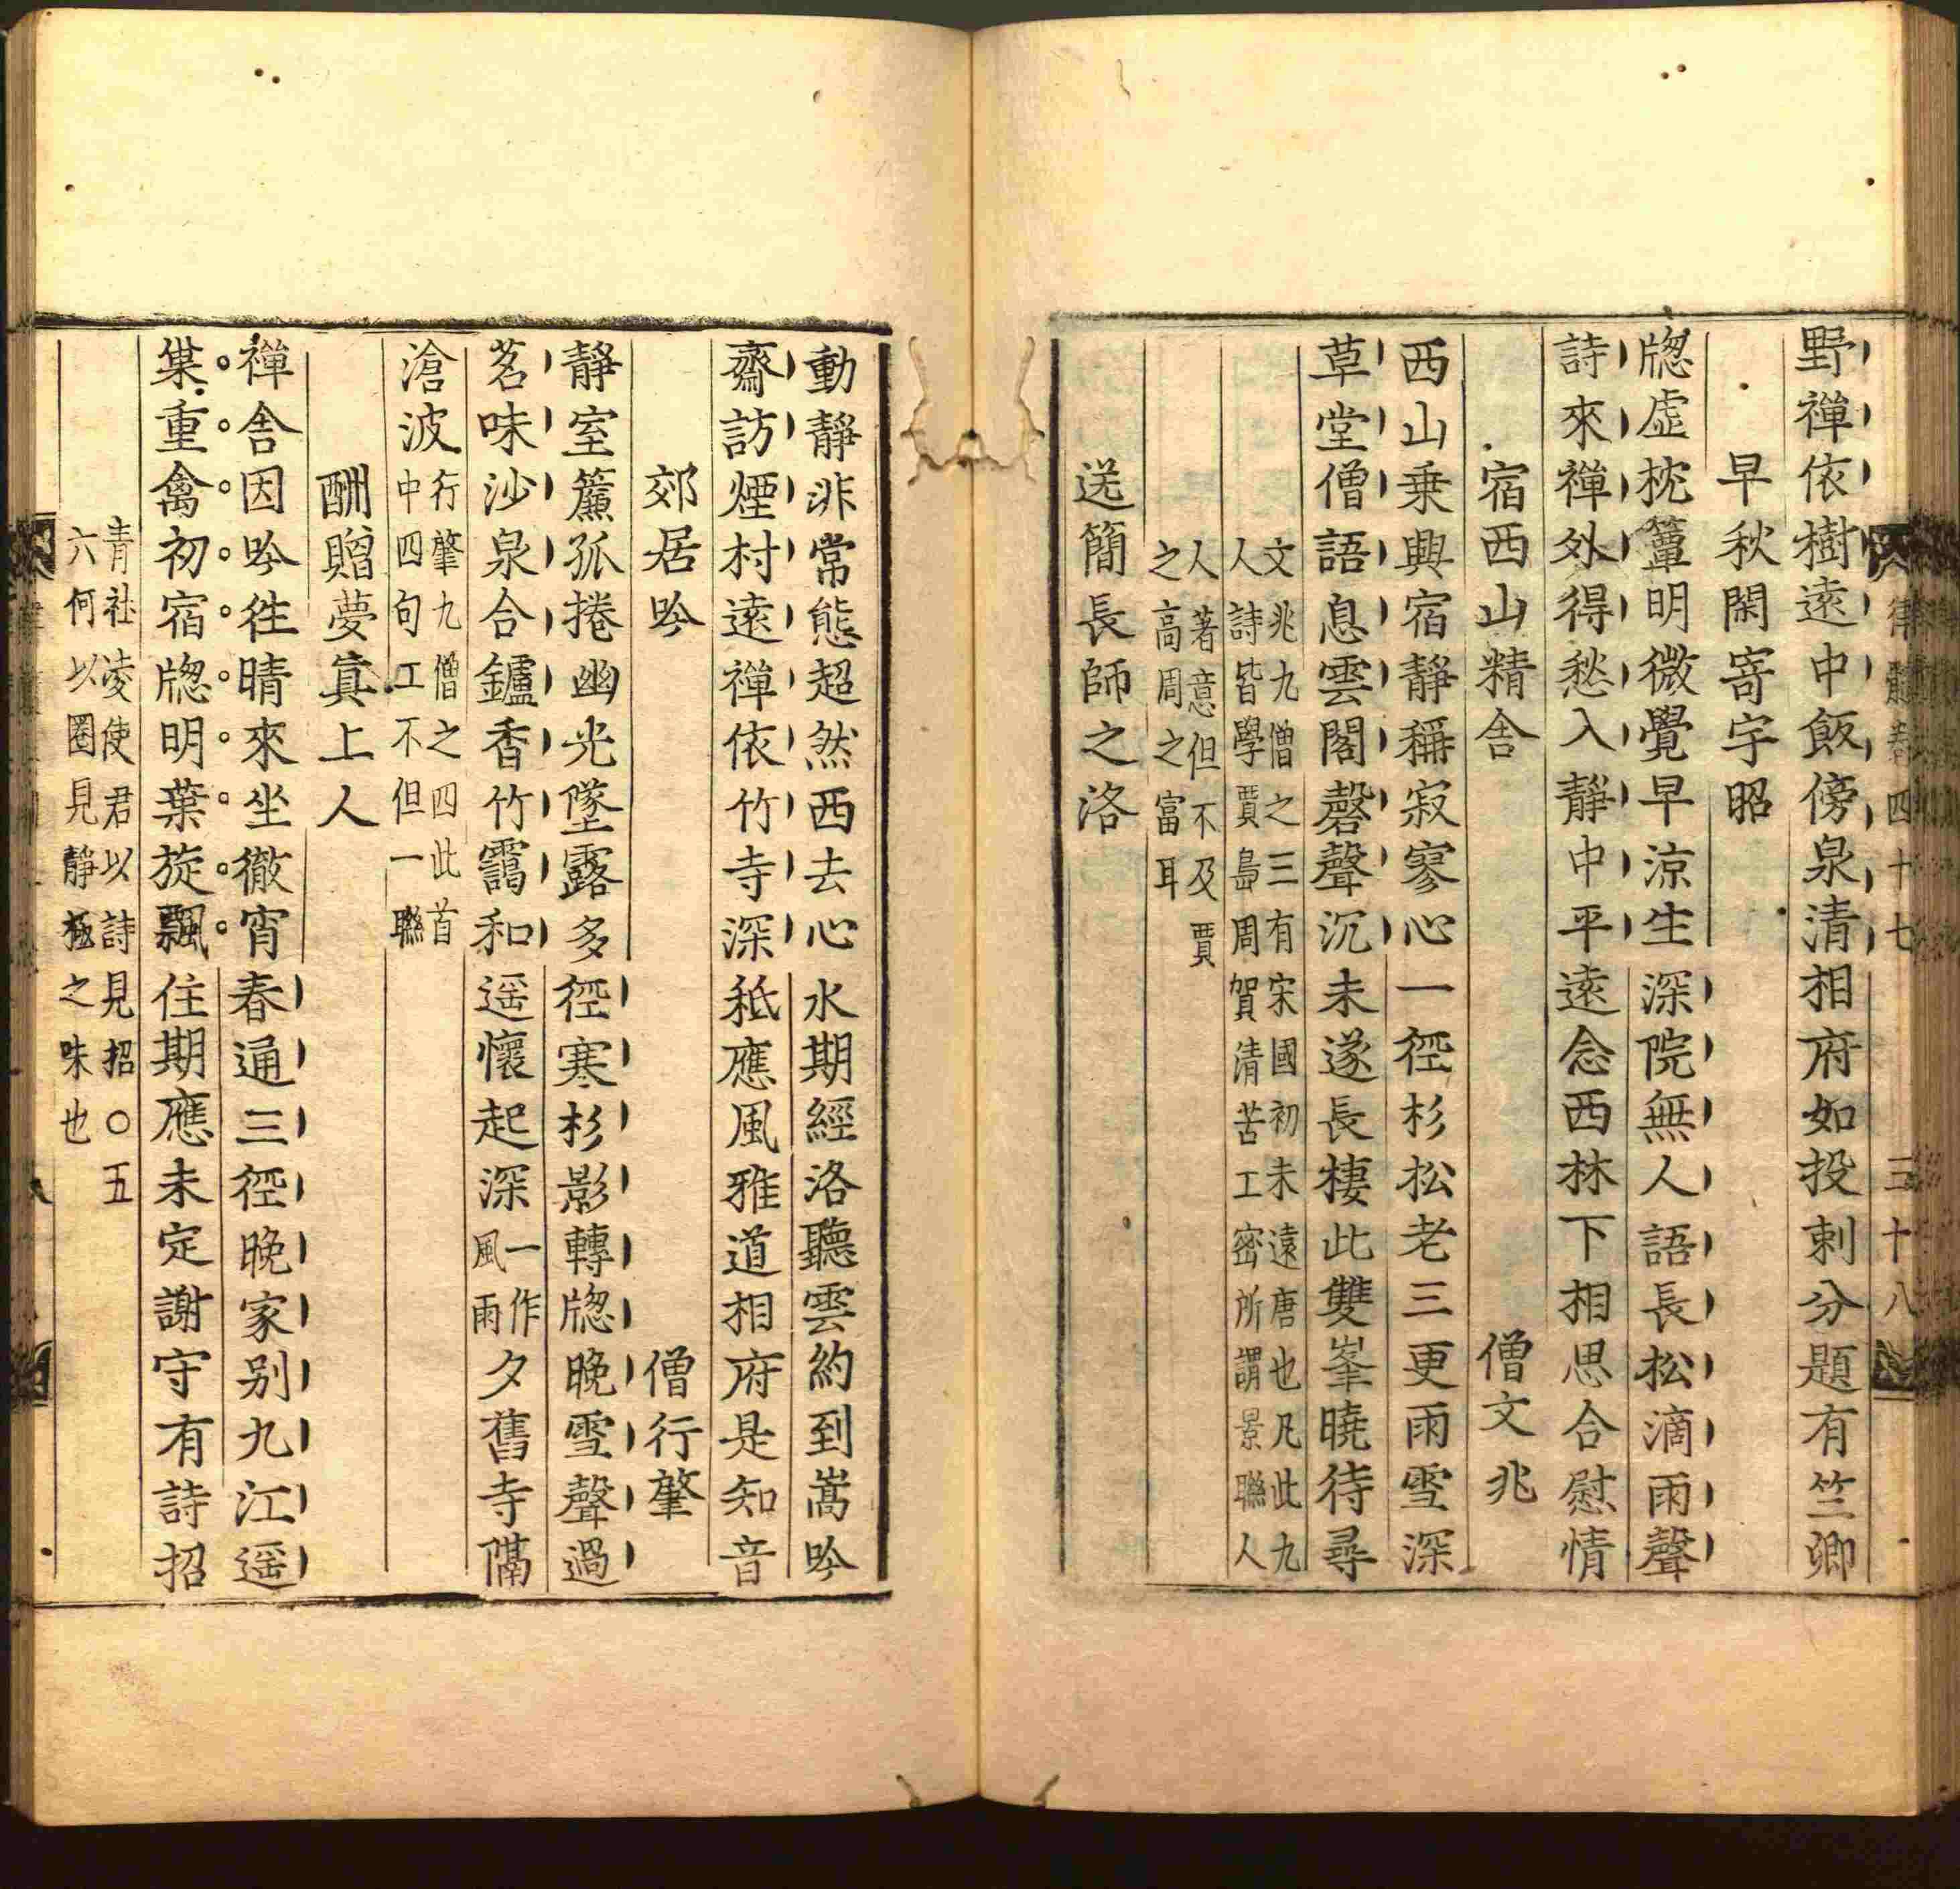 律髓卷四十七 三十八
野禪依樹遠中飯傍泉清相府如投刺分題有竺卿
早秋閑寄宇昭
牕虛枕簟明微覺早涼生深院無人語長松滴雨聲
詩來禪外得愁入靜中平遠念西林下相思合慰情
宿西山精舍 僧文兆
西山乗興宿靜稱寂寥心一徑杉松老三更雨雪深
草堂僧語息雲閣磬聲沉未遂長棲此雙峯曉待尋
文兆九僧之三有宋國初未遠唐也凡此九
人詩皆學賈島周賀清苦工密所謂景聯人
人著意但不及賈
之高周之富耳
送簡長師之洛
動靜非常態超然西去心水期經洛聽雲約到嵩吟
齋訪煙村遠禪依竹寺深秪應風雅道相府是知音
郊居吟 僧行肇
靜室簾孤捲幽光墜露多徑寒杉影轉牕晚雪聲過
茗味沙泉合鑪香竹靄和遥懷起深一作風雨夕舊寺隔
滄波
行肇九僧之四此首
中四句工不但一聯
酬贈夢真上人
禪舍因吟徃晴來坐徹宵春通三徑晚家别九江遥
巢重禽初宿牕明葉旋飄住期應未定謝守有詩招
青社凌使君以詩見招○五
六何以圈見靜極之味也